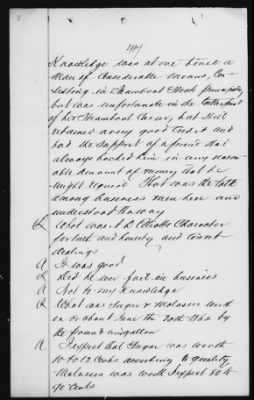 Knowledge was at one time a
man of Considerable means, Con-
sisting in Steamboat Stock
but was unfortunate in the latter part
of his Steamboat Career, but still
retained a very good Credit and
had the support of a friend that
always backed him in any reason-
able amount of money that he
might require That was the talk
among business men here and
understood that way
Q What was Character
for truth and honesty and
dealings
A It was good
Q Did he ever fail in business
A Not to my Knowledge
Q What was Sugar & Molasses worth
on or about June the 20th 1862 by
the pound & gallon
A I expect that Sugar was worth
10 to 12 Cents according to quality
Molasses was worth I expect 50 to
70 Cents